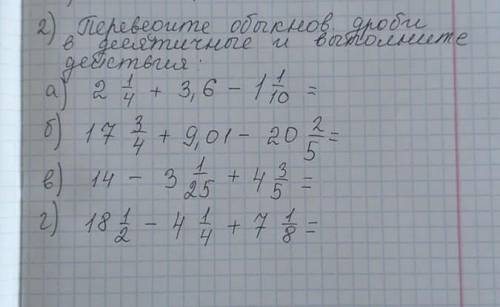 2) Переведите обыкнов. дроби
в десятичные и выполните
действия.
а) 2 1/4 + 3,6 - 1 1/10 =
б) 17 3/4 + 9,01 - 20 2/5 =
в) 14 - 3 1/25 + 4 3/5 =
г) 18 1/2 - 4 1/4 + 7 1/8 =